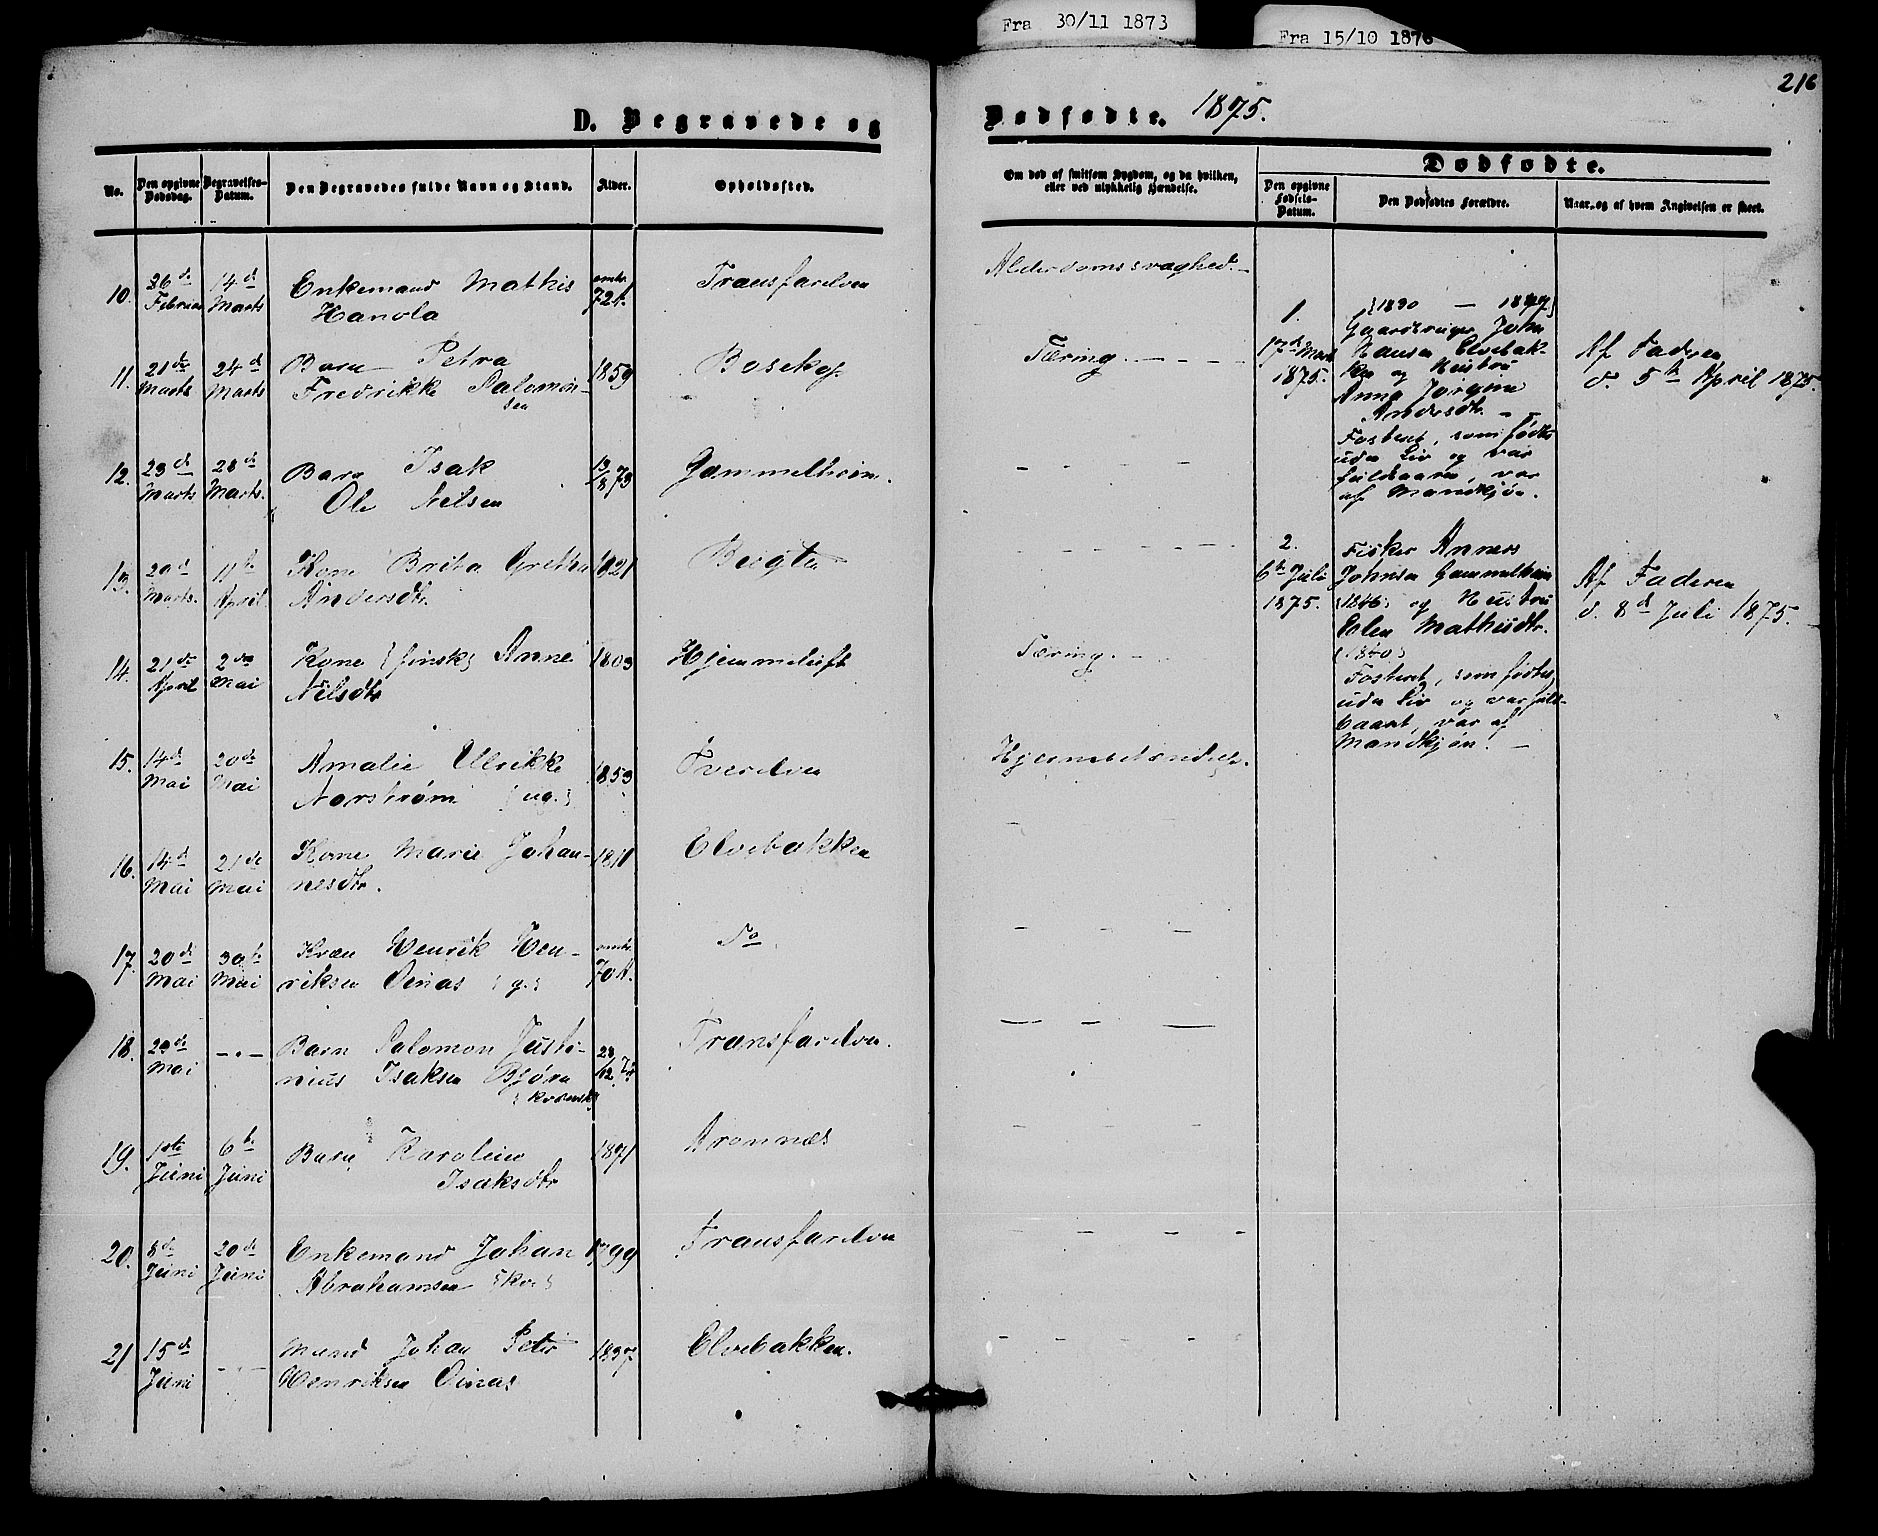 Fra 30/11 1873
Fra 15/10 1876
216
D. Begravede og Dødfødte. 1875.
No.
Den opgivne Dødsdag.
Begravelses-Datum.
Den Begravedes fulde Navn og Stand.
Alder.
Opholdssted.
Om død af smitsom Sygdom, og da hvilken,
eller ved ulykkelig Hændelse.
Dødfødte.
Den opgivne Fødsels-Datum.
Den Dødfødtes Forældre.
Naar, og af hvem Angivelsen er skeet.
10. 26de Februar 14de Marts Enkemand Mathis omtr. 72 A. Transfarelven Alderdomssvaghed.
Hanola
11. 21de Marts 24de Marts Barn Petra 1859 Bosekop Tæring.
Fredrikke Salomon-
sen
12. 23de Marts 28de Marts. Barn Isak 13/8 73 Gammelheim.
Ole Nelsen
13. 29de Marts. 11te April Kone Brita Grethe 1821 Bugten
Andersdtr.
14. 21de April 2den Mai Kone (finsk) Anne 1803 Hjemmeluft Tæring.
Nilsdtr
15. 14de Mai 20de Mai Amalie Ulrikke 1853 Tverelven
Norstrøm (ug.)
16. 14de Mai 21de Mai Kone Marie Johan- 1811 Elvebakken
nesdtr.
17. 20de Mai 30te Mai Kvæn Henrik Hen- omtr. 70 A. Do
riksen Oinas (g.)
18. 29de Mai -"- Barn Salomon Justi- 28/12 74 Transfarelven.
nius Isaksen Bjørn
(kvænsk)
19. 1ste Juni 6te Juni Barn Karoline 1871 Aronnæs
Isaksdtr
20. 8de Juni 20de Juni Enkemand Johan 1799 Transfarelven
Abrahamsen (kv.)
21 15de Juni -"- Mand Johan Peter 1837 Elvebakken.
Henriksen Oinas
1.
17de Marts
1875.
Gaardbruger John
Hansen Elvebak-
ken og Hustru
Anna Jørgine
Andersdtr. -
Fosteret, som fødtes
uden Liv og var
fuldbaaren, var
af Mandkjøn.
Af Faderen
d. 5te April 1875.
2.
6te Juli
1875.
Fisker Anners
Johnsen Gammelheim
(1846) og Hustru
Elen Mathisdtr.
(1840)
Fosteret, som fødtes
uden Liv og var fuld-
baaret, var af
Mandkjøn. -
Af Faderen
d. 8de Juli 1875.